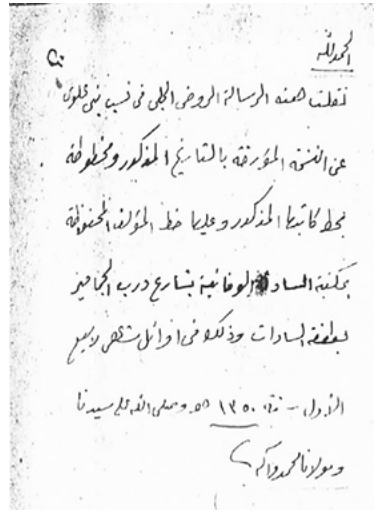 الحمد لله
نقلت هذه الرسالة الروض الجلى فى نسب بنى علوى
عن النسخة المؤرخة بالتاريخ المذكور ومخطوطة
بخط كاتبها المذكور وعليها خط المؤلف المحفوظة
بمكتبة السادة الوفائية بشارع درب الجماميز
بعطفة السادات وذلك فى اوائل شهر ربيع
الأول سنة ١٣٥٠ هـ وصلى الله على سيدنا
ومولانا محمد وآله